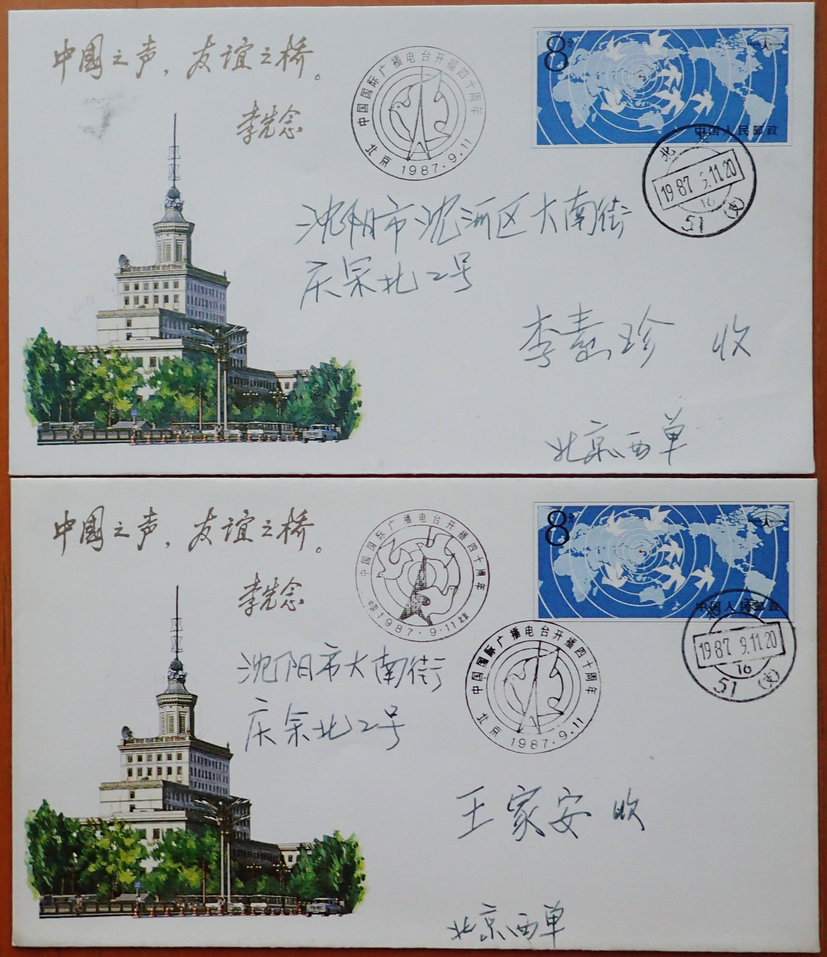 中国之声，友谊之桥。
李先念
中国国际广播电台开播四十周年
北京 1987·9·11
8分
中国人民邮政
北
1987 9.11.20
16
51 (支)
沈阳市沈河区大南街
庆余北2号
李素珍 收
北京西单
中国之声，友谊之桥。
李先念
中国国际广播电台开播四十周年
中国 1987·9·11 北京
8分
中国人民邮政
1987 9.11.20
16
51 (支)
中国国际广播电台开播四十周年
北京 1987·9·11
沈阳市大南街
庆余北2号
王家安 收
北京西单